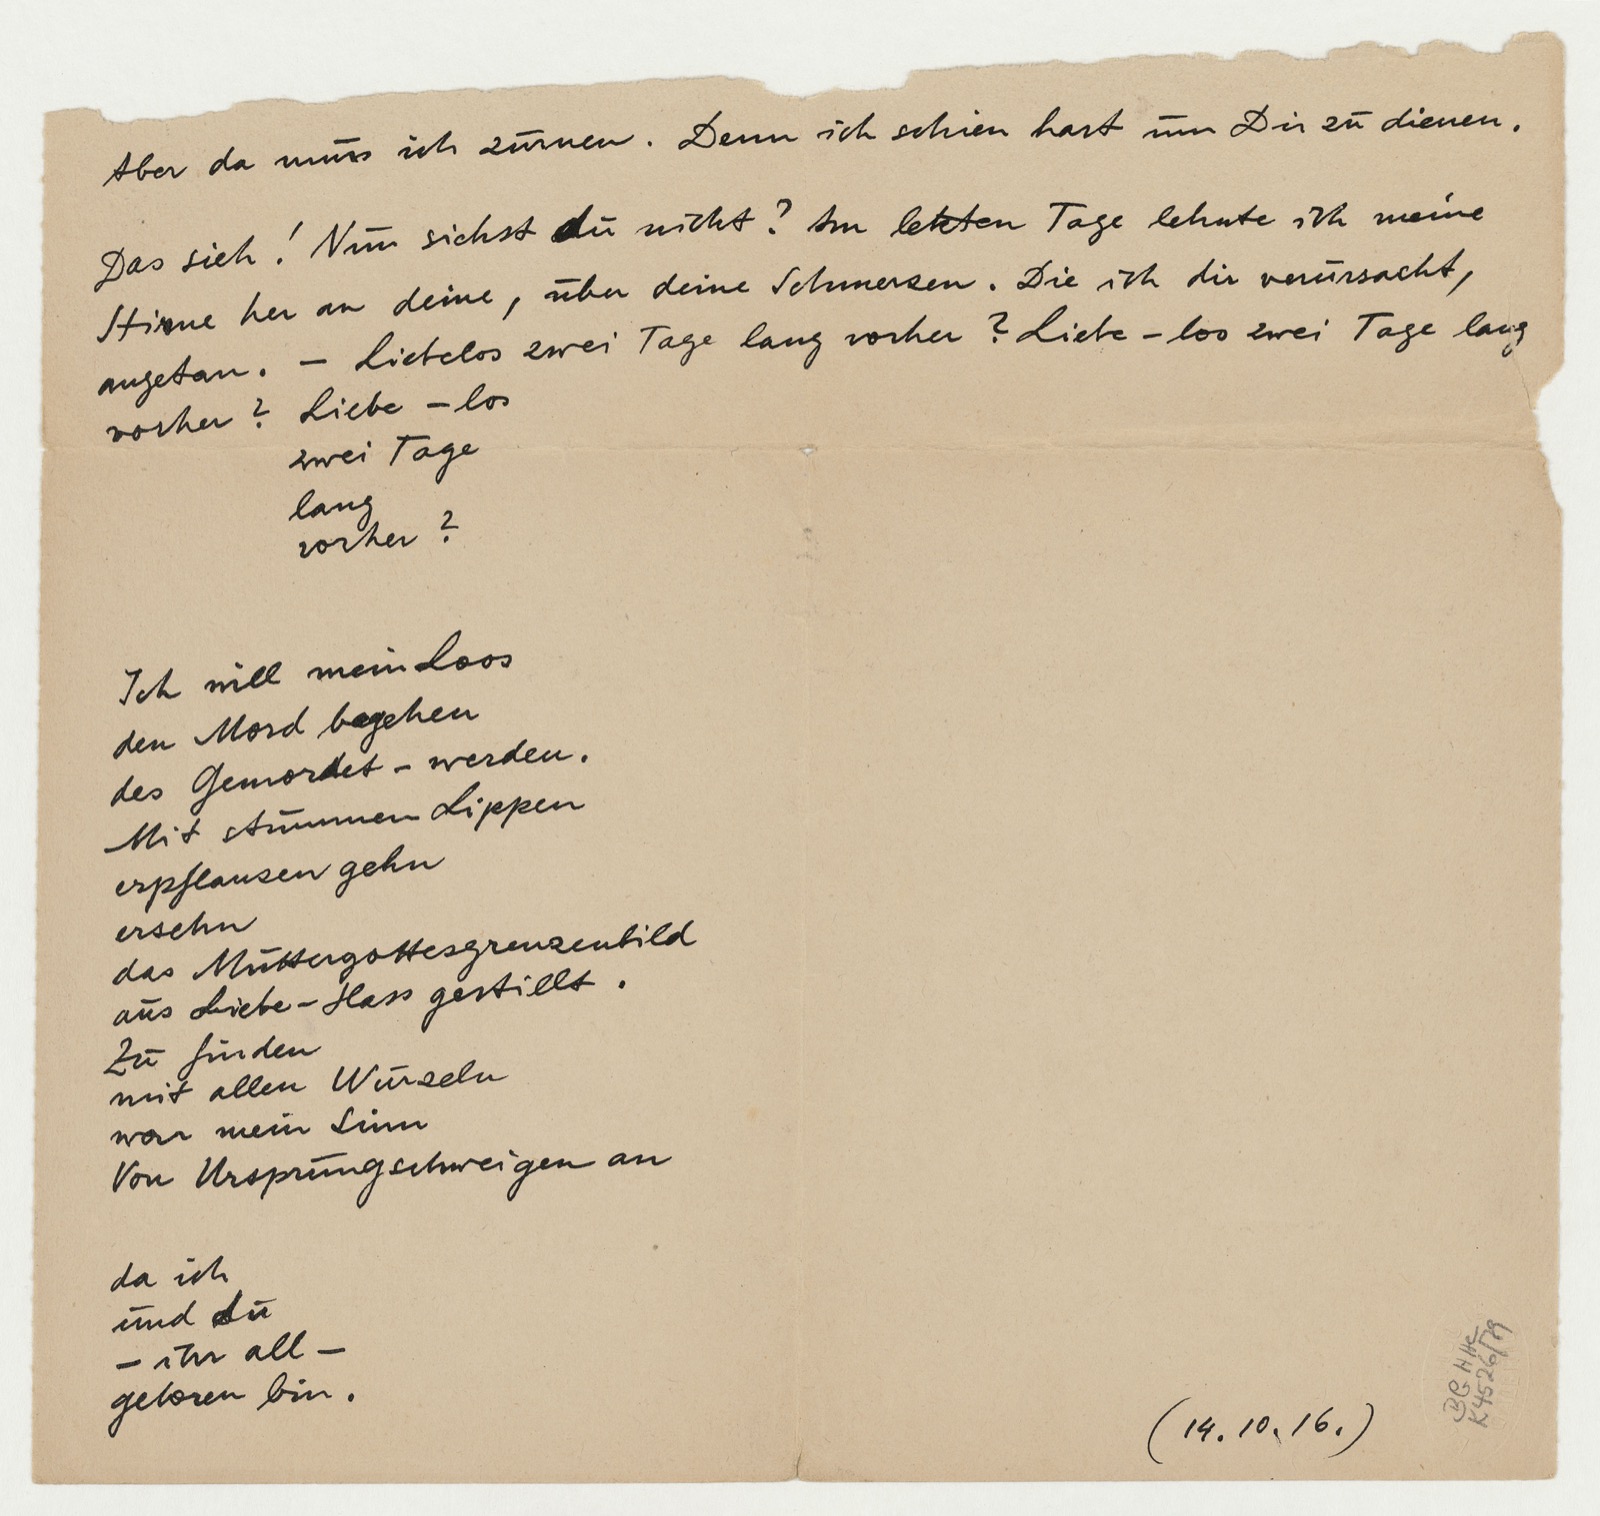 Aber da muss ich zürnen. Denn ich schien hart um Dir zu dienen.
Das sieh! Nun siehst du nicht? Am letzten Tage lehnte ich meine
Stirne her an deine, über deine Schmerzen. Die ich dir verursacht,
angetan. – Liebelos zwei Tage lang vorher? Liebe – los zwei Tage lang
vorher? Liebe – los
zwei Tage
lang
vorher?
Ich will mein Loos
den Mord begehen
des Gemordet – werden.
Mit stummen Lippen
erpflanzen gehn
ersehn
das Muttergottesgrenzenbild
aus Liebe – Hass gestillt.
Zu finden
mit allen Wurzeln
war mein Sinn
Von Ursprungschweigen an
da ich
und du
– ihr all –
geboren bin.
(14.10.16.)
BG HHC
K4526/79